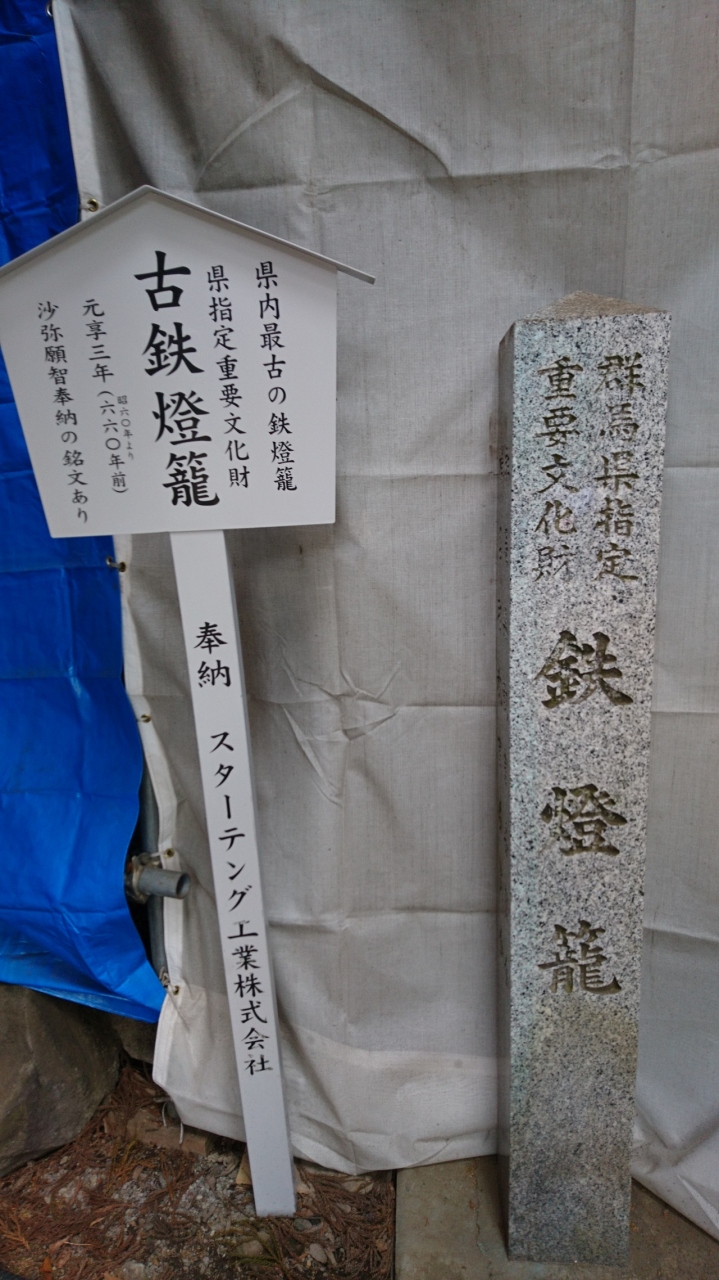 県内最古の鉄燈籠
県指定重要文化財
古鉄燈籠
元享三年(六六〇年前)
昭六〇年より
沙弥願智奉納の銘文あり
奉納 スターテング工業株式会社
群馬県指定
重要文化財
鉄燈籠